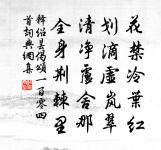 花禁冷葉红
划滴虚岚翠
清净卢舍那
全身荆棘里
释绍昙偈颂一百零四
首词典网集